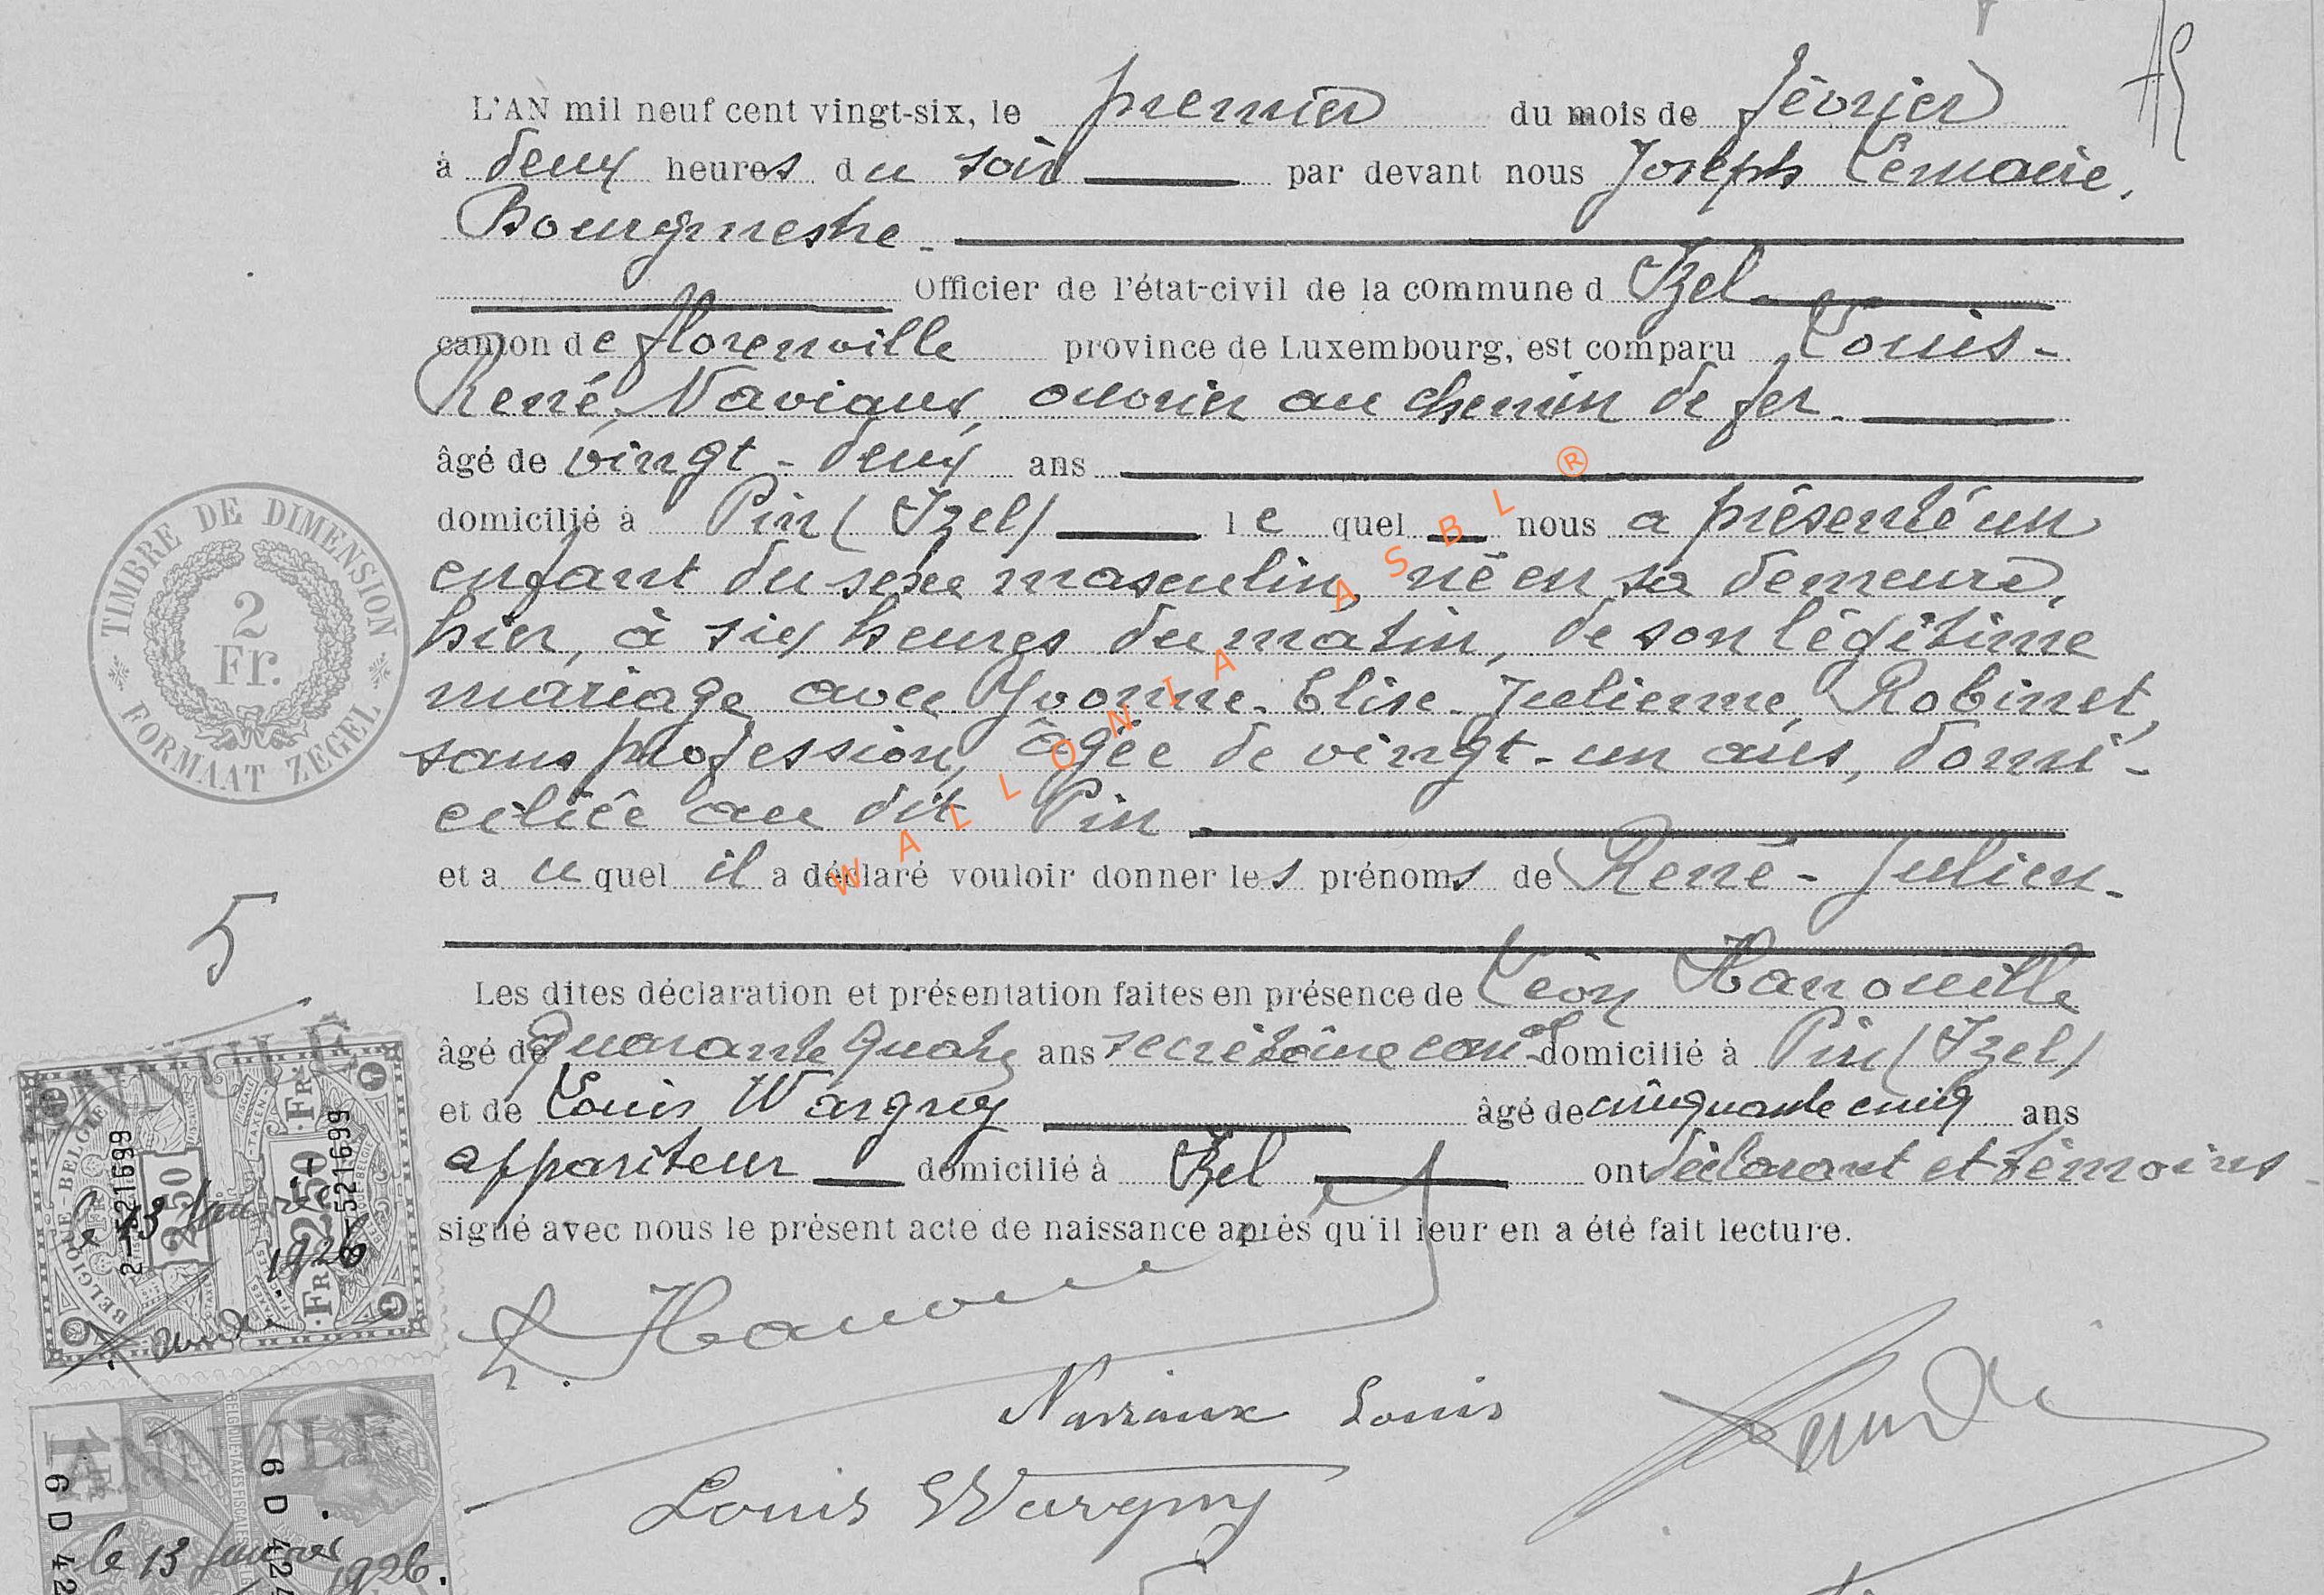 L'AN mil neuf cent vingt-six, le premier du mois de février
à deux heures du soir par devant nous Joseph Lemaire,
Bourgmestre
Officier de l'état-civil de la commune d Izel
canton de florenville province de Luxembourg, est comparu Louis-
René, Naviaux, ouvrier au chemin de fer.
âgé de vingt-deux ans
domicilié à Pin (Izel) le quel nous a présenté un
enfant du sexe masculin, né en sa demeure,
hier, à six heures du matin, de son légitime
mariage avec Yvonne-Elise-Julienne, Robinet,
sans profession, âgée de vingt-un ans, domi-
ciliée au dit Pin
et auquel il a déclaré vouloir donner les prénoms de René-Julien-
5
Les dites déclaration et présentation faites en présence de Léon Hanouille
âgé de quarante quatre ans secrétaire comal domicilié à Pin (Izel)
et de Louis Wargny âgé de cinquante cinq ans
appariteur domicilié à Izel ont déclarant et témoins
signé avec nous le présent acte de naissance après qu'il leur en a été fait lecture.
L. Hanouille
Naviaux Louis
Louis Wargny
TIMBRE DE DIMENSION
2
Fr.
FORMAAT ZEGEL
WALLONIA ASBL ®
ANNULÉ
BELGIQUE-BELGIË
2-521699
2-521699
2 50
FR 2 50 FR
le 13 Janvier
1926
ANNULÉ
1
6 D 42
6 D 424
le 13 Janvier 1926.